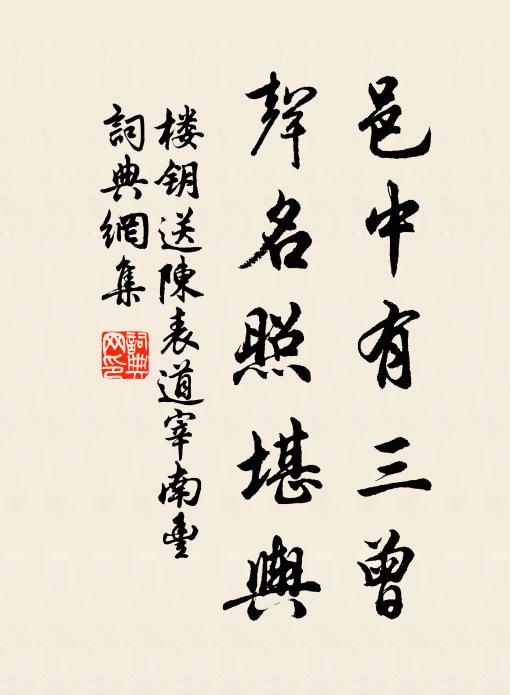 邑中有三曾
聲名照堪輿
楼钥送陳表道宰南豊
詞典網集
詞典网印